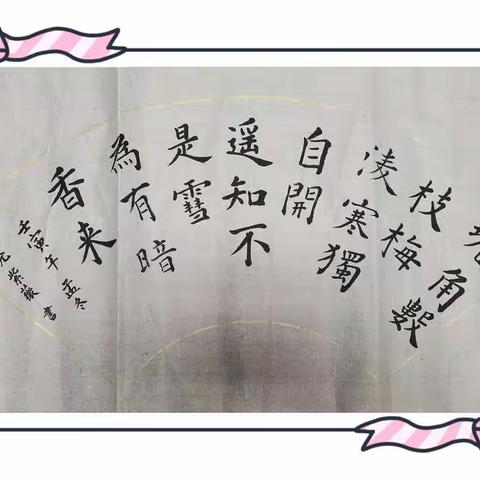 角數
枝梅
淩寒獨
自開
遥知不
是雪
為有暗
香来
壬寅年孟冬
紫薇書